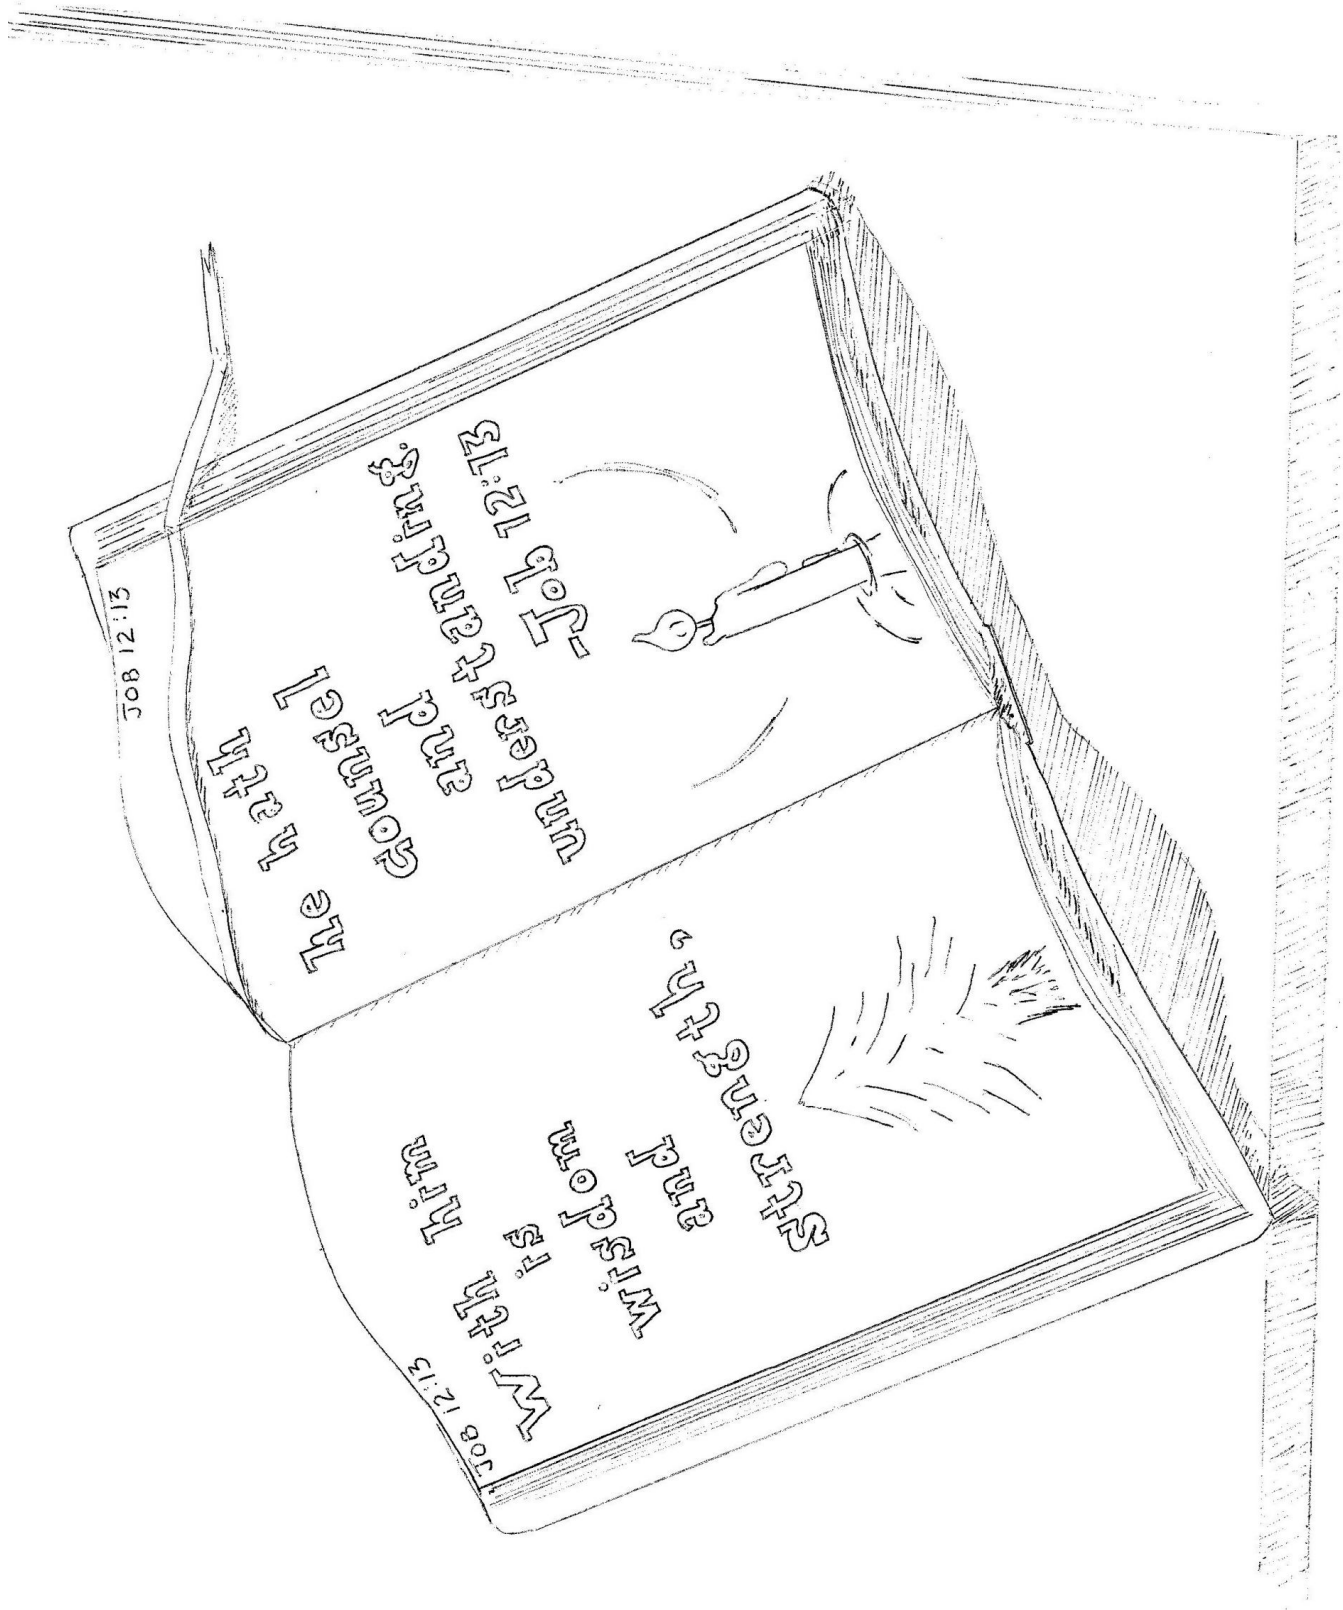 JOB 12:13
With him
is
wisdom
and
strength,
JOB 12:13
he hath
counsel
and
understanding.
-Job 12:13